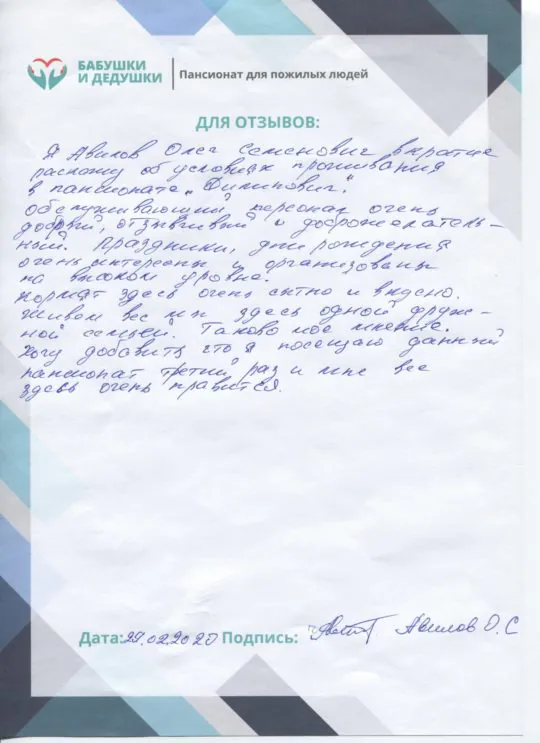 БАБУШКИ
И ДЕДУШКИ
Пансионат для пожилых людей
ДЛЯ ОТЗЫВОВ:
Я Авилов Олег Семенович вкратце
раскажу об условиях проживания
в пансионате
обслуживающий персонал очень
добрый, отзывчивый и доброжелатель-
ный. Праздники, дни рождения
очень интересны и организованы
на высоком уровне.
кормят здесь очень сытно и вкусно.
живем все мы здесь одной друж-
ной семьей. Таково мое мнение.
Хочу добавить что я посещаю данный
пансионат третий раз и мне все
здесь очень нравится.
Дата: 29.02.2020 Подпись: Авилов О.С